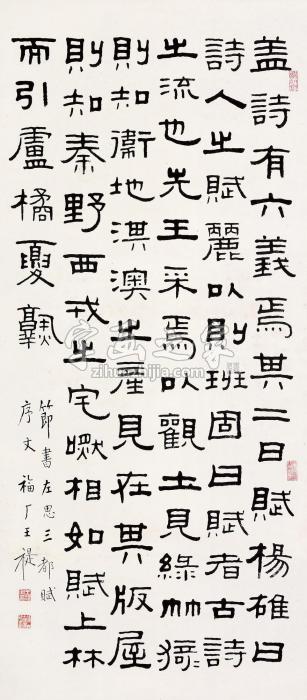 盖詩有六義焉其二曰賦楊雄曰
詩人之賦麗以則班固曰賦者古詩
之流也先王采焉以觀土見綠竹猗
則知衛地淇澳之産見在其版屋
則知秦野西戎之宅嘫相如賦上林
而引盧橘夏孰
節書左思三都賦
序文 福厂王禔
字画之家
zihuazhijia.com